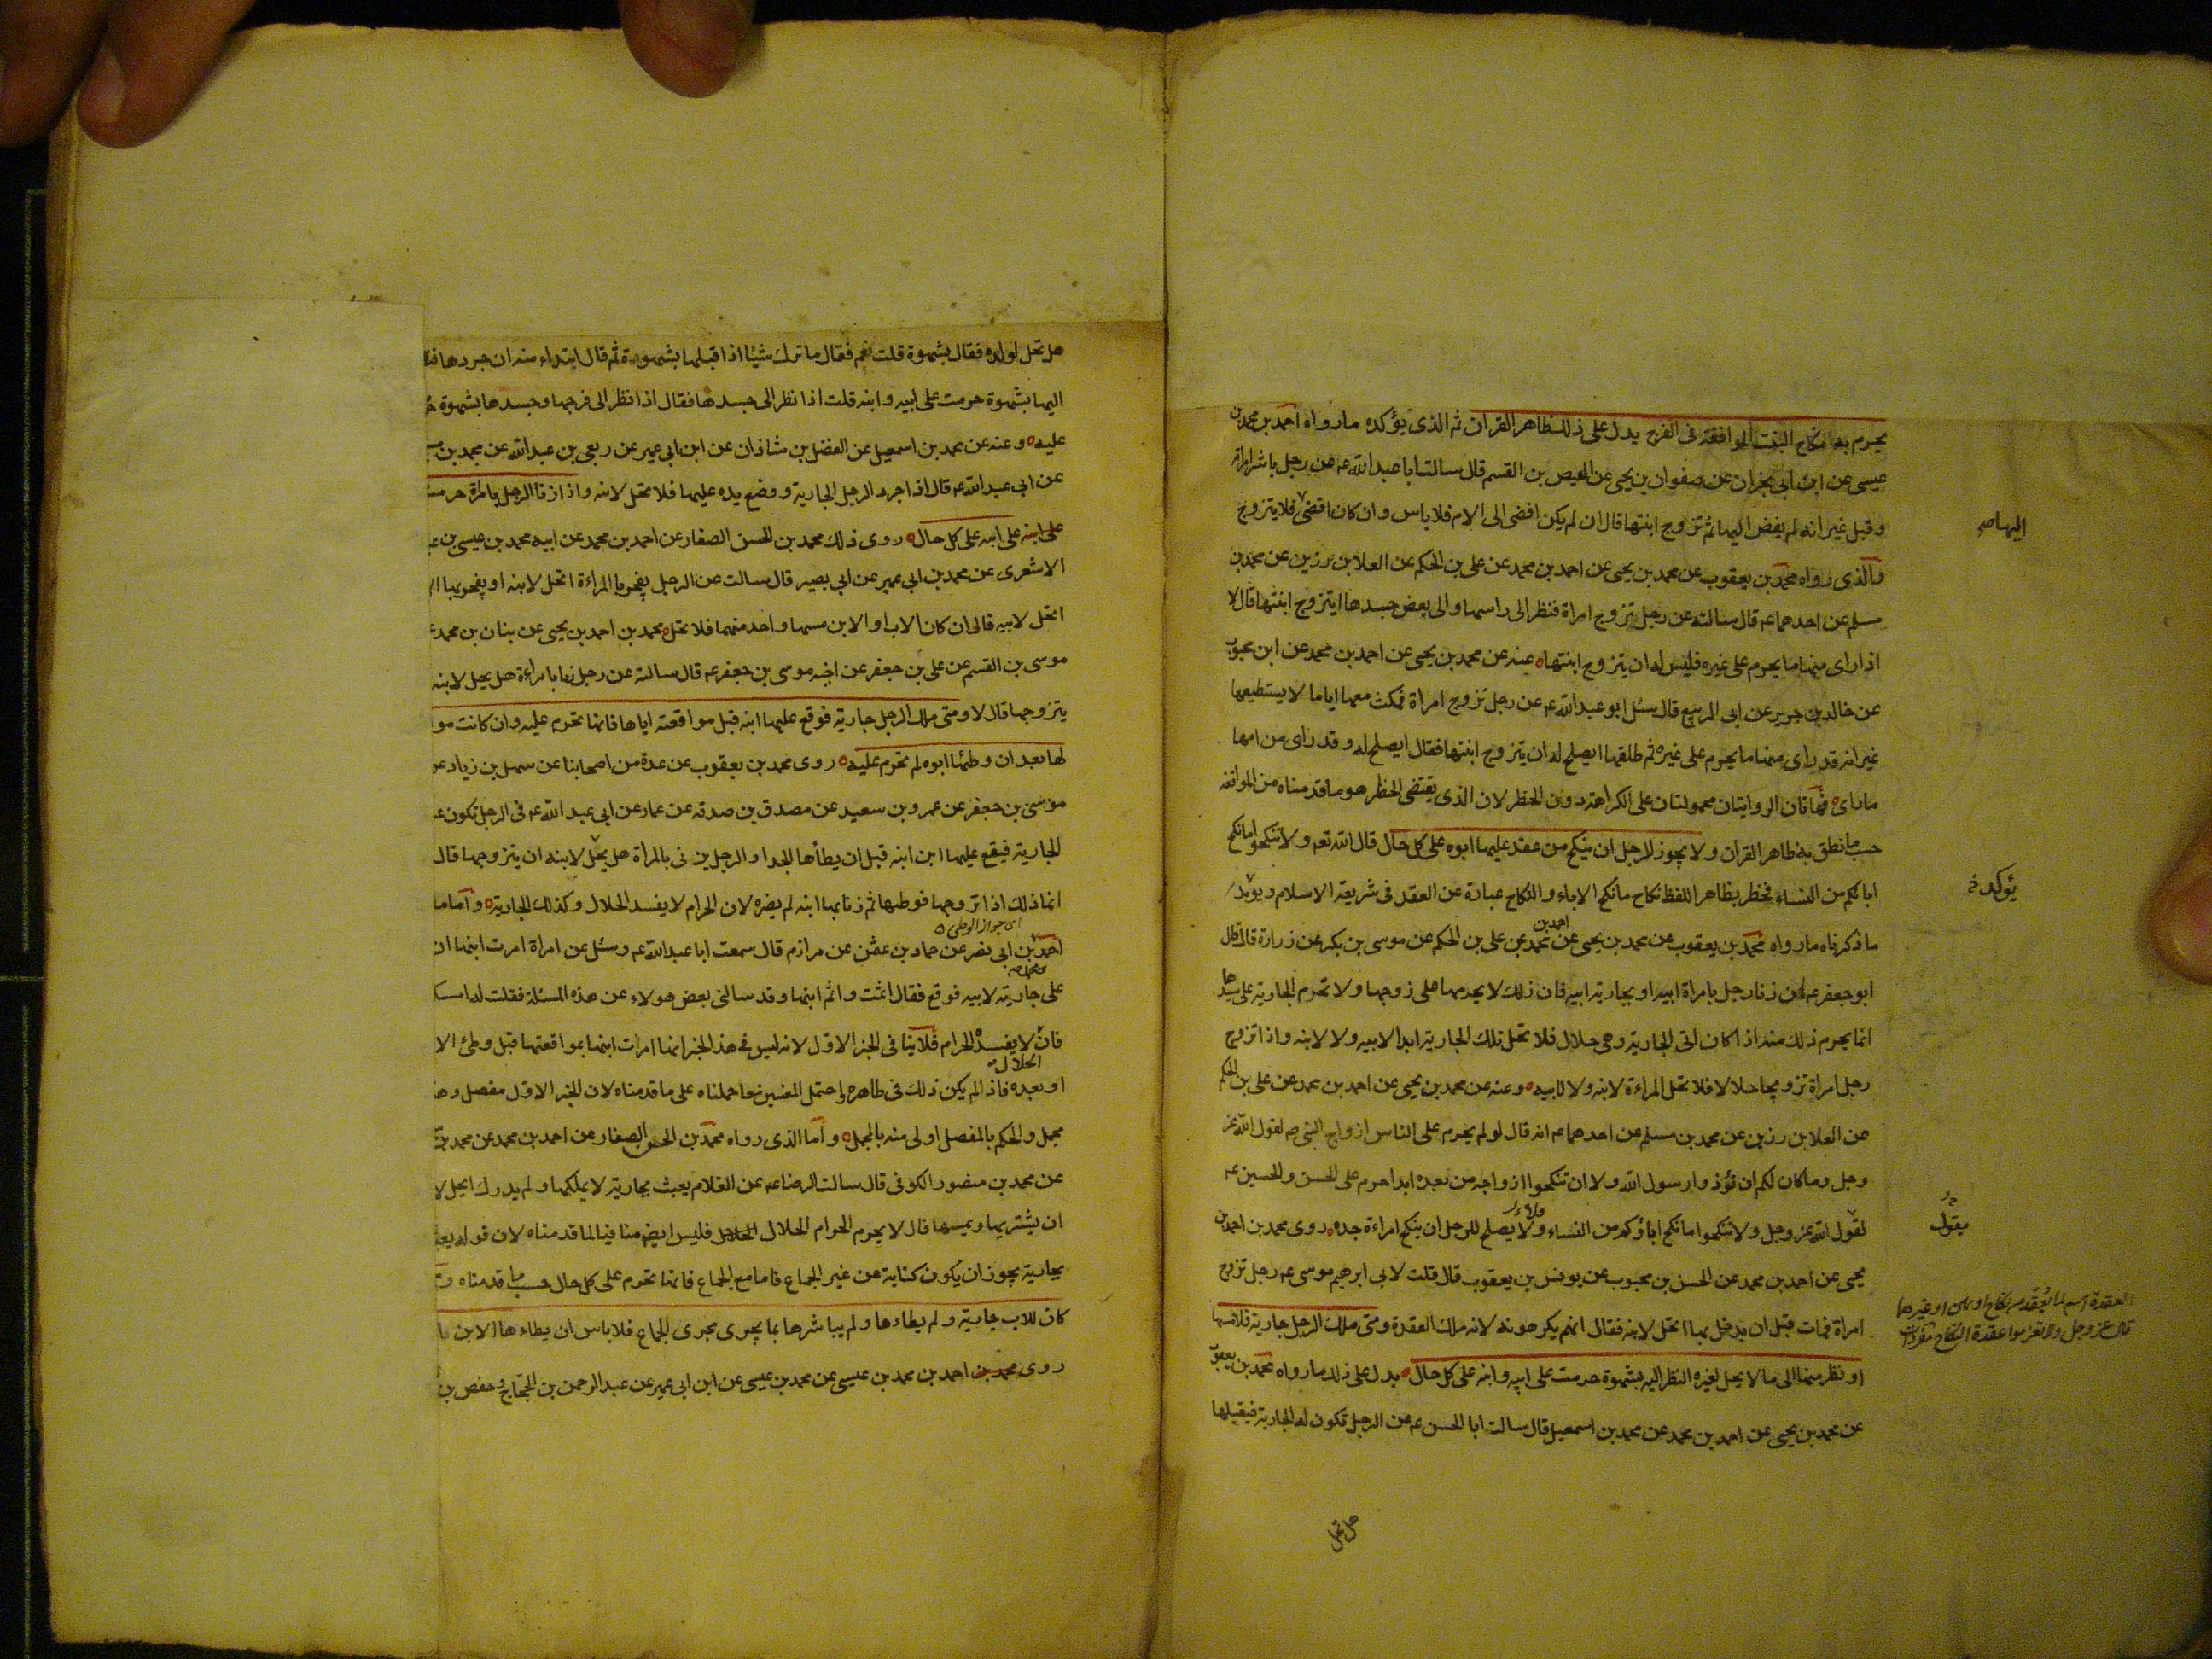 يحرم به نكاح البنت المواقعة فى الفرج يدل على ذلك ظاهر القران ثم الذى يؤكده ما رواه احمد بن محمد بن
عيسى عن ابن ابى نجران عن صفوان بن يحيى عن العيص بن القسم قال سالت ابا عبد الله عه عن رجل باشر امراة
وقبل غير انه لم يفض اليها ثم تزوج ابنتها قال ان لم يكن افضى الى الام فلا باس وان كان افضى فلا يتزوج
اليها صه
والذى رواه محمد بن يعقوب عن محمد بن يحيى عن احمد بن محمد عن على بن الحكم عن العلا بن رزين عن محمد بن
مسلم عن احدهما عه قال سالته عن رجل تزوج امراة فنظر الى راسها والى بعض جسدها ايتزوج ابنتها قال لا
اذا راى منها ما يحرم على غيره فليس له ان يتزوج ابنتها عنه عن محمد بن يحيى عن احمد بن محمد عن ابن محبوب
عن خالد بن جرير عن ابى الربيع قال سئل ابو عبد الله عه عن رجل تزوج امراة فمكث معها اياما لا يستطيعها
غير انه قد راى منها ما يحرم على غيره ثم طلقها ايصلح له ان يتزوج ابنتها فقال ايصلح له وقد راى من امها
ما راى فهاتان الروايتان محمولتان على الكراهة دون الحظر لان الذى يقتضى الحظر هو ما قدمناه من المواقعة
حسب ما نطق به ظاهر القران ولا يجوز للرجل ان ينكح من عقد عليها ابوه على كل حال قال الله تعه ولا تنكحوا ما نكح
اباؤكم من النساء فحظر بظاهر اللفظ نكاح ما نكح الاباء والنكاح عبارة عن العقد فى شريعة الاسلام ويؤيد
يؤكد خ
ما ذكرناه ما رواه محمد بن يعقوب عن محمد بن يحيى عن احمد بن محمد عن على بن الحكم عن موسى بن بكر عن زرارة قال قال
ابو جعفر عه ان زنا رجل بامراة ابيه او بجارية ابيه فان ذلك لا يحرمها على زوجها ولا تحرم الجارية على سيدها
انما يحرم ذلك منه اذا كان اتى الجارية وهى حلال فلا تحل تلك الجارية ابدا لابيه ولا لابنه واذا تزوج
رجل امراة تزويجا حلالا فلا تحل المراءة لابنه ولا لابيه وعنه عن محمد بن يحيى عن احمد بن محمد عن على بن الحكم
عن العلا بن رزين عن محمد بن مسلم عن احدهما عه انه قال لو لم يحرم على الناس ازواج النبى صه لقول الله عز
وجل وما كان لكم ان تؤذوا رسول الله ولا ان تنكحوا ازواجه من بعده ابدا حرم على الحسن والحسين عه
لقول الله عز وجل ولا تنكحوا ما نكح اباؤكم من النساء ولا يصلح للرجل ان ينكح امراءة جده روى محمد بن احمد بن
يقول
يحيى عن احمد بن محمد عن الحسن بن محبوب عن يونس بن يعقوب قال قلت لابى ابرهيم موسى عه رجل تزوج
امراة فمات قبل ان يدخل بها اتحل لابنه فقال انهم يكرهونه لانه ملك العقدة ومتى ملك الرجل جارية فلامسها
العقدة اسم لما يعقد من نكاح او يمين او غيرها
قال عز وجل ولا تعزموا عقدة النكاح مفردات
او نظر منها الى ما لا يحل لغيره النظر اليه بشهوة حرمت على ابيه وابنه على كل حال يدل على ذلك ما رواه محمد بن يعقوب
عن محمد بن يحيى عن احمد بن محمد عن محمد بن اسمعيل قال سالت ابا الحسن عه عن الرجل تكون له الجارية فيقبلها
هل تحل
هل تحل لولده فقال بشهوة قلت نعم فقال ما ترك شيئا اذا قبلها بشهوة ثم قال ابتداء منه ان جردها
اليها بشهوة حرمت على ابيه وابنه قلت اذا نظر الى جسدها فقال اذا نظر الى فرجها وجسدها بشهوة
عليه وعنه عن محمد بن اسمعيل عن الفضل بن شاذان عن ابن ابى عمير عن ربعى بن عبد الله عن محمد بن
عن ابى عبد الله عه قال اذا جرد الرجل الجارية ووضع يده عليها فلا تحل لابنه واذا زنا الرجل بامراة حرمت
على ابيه على ابنه على كل حال روى ذلك محمد بن الحسن الصفار عن احمد بن محمد عن ابيه محمد بن عيسى بن
الاشعرى عن محمد بن ابى عمير عن ابى بصير قال سالت عن الرجل يفجر بالمراءة اتحل لابنه او يفجر بها
اتحل لابيه قال ان كان الاب او الابن مسها واحد منهما فلا تحل محمد بن احمد بن يحيى عن بنان بن محمد
موسى بن القسم عن على بن جعفر عن اخيه موسى بن جعفر عه قال سالته عن رجل زنا بامراءة هل يحل لابنه
يتزوجها قال لا ومتى ملك الرجل جارية فوقع عليها ابنه قبل مواقعته اياها فانها تحرم عليه وان كانت
لها بعد ان وطئها ابوه لم تحرم عليه روى محمد بن يعقوب عن عدة من اصحابنا عن سهل بن زياد
موسى بن جعفر عن عمرو بن سعيد عن مصدق بن صدقه عن عمار عن ابى عبد الله عه فى الرجل تكون
الجارية فيقع عليها ابن ابنه قبل ان يطأها الجد او الرجل يزنى بالمراة هل يحل لابنه ان يتزوجها قال
انما ذلك اذا تزوجها فوطها ثم زنا بها ابنه لم يضره لان الحرام لا يفسد الحلال وكذلك الجارية واما ما
اى جواز الوطى
احمد بن ابى نصر عن حماد بن عثمن عن مرازم قال سمعت ابا عبد الله عه وسئل عن امراة امرت ابنها ان
على جارية لابيه فوقع فقال اثمت واثم ابنها وقد سالنى بعض هولاء عن هذه المسئلة فقلت له امسك
فان لا يفسد الحرام فلا ينافى الخبر الاول لانه ليس فى هذا الخبر انها امرت ابنها بمواقعتها قبل وطئ
الحلال
او بعده فاذا لم يكن ذلك فى ظاهره واحتمل المعنيين معا حملناه على ما قدمناه لان الخبر الاول مفصل
مجمل والحكم بالمفصل اولى منه بالمجمل واما الذى رواه محمد بن الحسن الصفار عن احمد بن محمد عن محمد بن
عن محمد بن منصور الكوفى قال سالت الرضا عه عن الغلام يعبث بجارية لا يملكها ولم يدرك ايحل
ان يشتريها ويمسها قال لا يحرم الحرام الحلال فليس ايضه منافيا لما قدمناه لان قوله
بجارية يجوز ان يكون كناية عن غير الجماع فاما مع الجماع فانها تحرم على كل حال حسب ما قدمناه
كان للاب جارية ولم يطاءها ولم يباشرها بما يجرى مجرى الجماع فلا باس ان يطاءها الابن
روى احمد بن محمد بن عيسى عن محمد بن عيسى عن ابن ابى عمير عن عبد الرحمن بن الحجاج وحفص بن